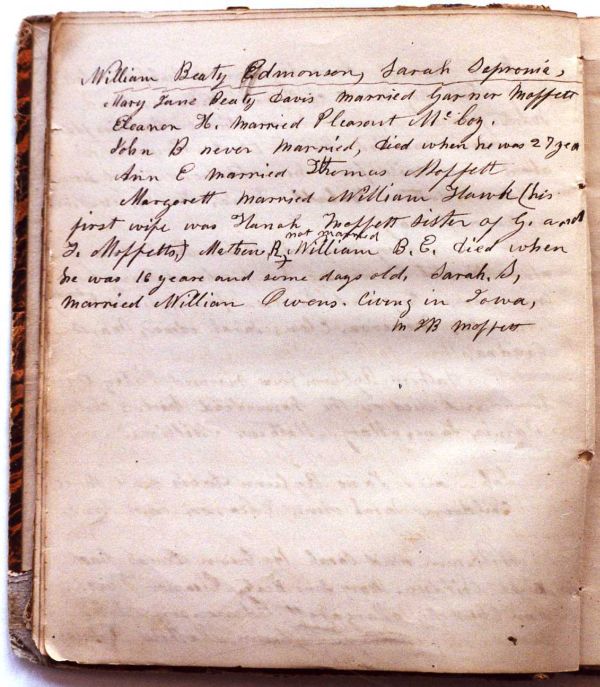 William Beaty Edmonson, Sarah Sepronia,
Mary Jane Beaty Davis married Garner Moffett
Eleanor H. married Pleasant McCoy.
John B never married, died when he was 27 yea
Ann E married Thomas Moffett
Margarett married William Hawk (his
first wife was Hanah Moffett sister of G. and
T. Moffetts,) Mathew R. not married William B. E. died when
he was 16 years and some days old. Sarah. S,
married William Owens. living in Iowa,
M J B Moffett